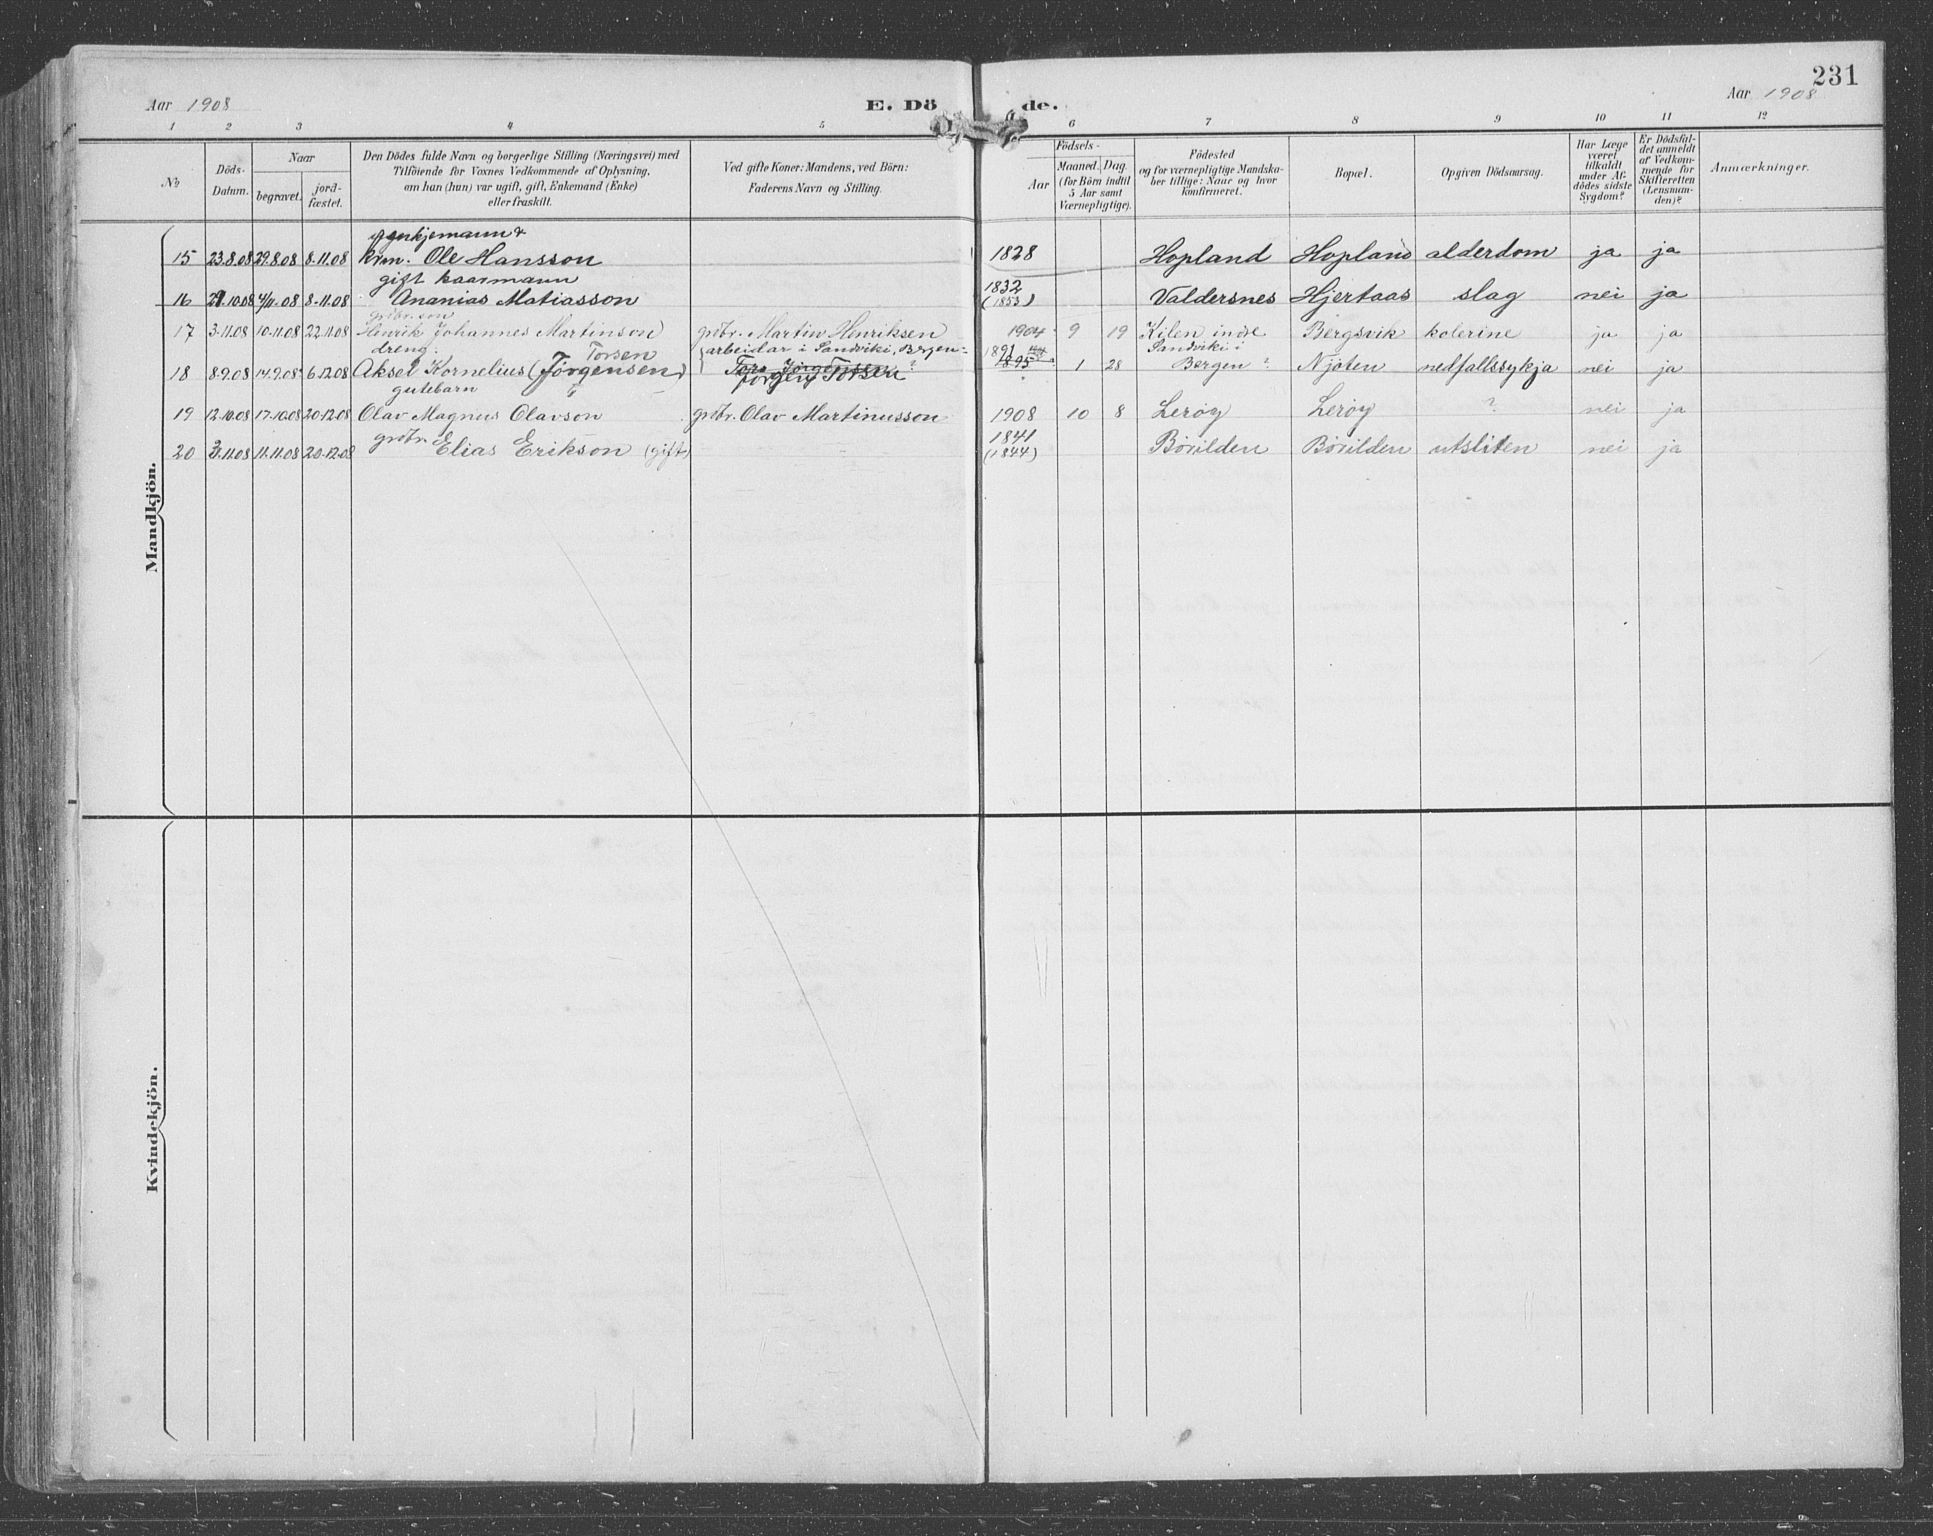 231
Aar 1908
E. Dö
de.
Aar 1908
1 2 3 4 5 6 7 8 9 10 11 12
No
Döds-
Datum.
Naar
begravet.
jord-
fæstet.
Den Dödes fulde Navn og borgerlige Stilling (Næringsvei) med
Tilföiende for Voxnes Vedkommende af Oplysning,
om han (hun) var ugift, gift, Enkemand (Enke)
eller fraskilt.
Ved gifte Koner: Mandens, ved Börn:
Faderens Navn og Stilling.
Födsels-
Aar
Maaned.
Dag.
(for Börn indtil
5 Aar samt
Værnepligtige).
Födested
og for værnepligtige Mandska-
ber tillige: Naar og hvor
konfirmeret.
Bopæl.
Opgiven Dödsaarsag.
Har Læge
været
tilkaldt
under Af-
dödes sidste
Sygdom?
Er Dödsfal-
det anmeldt
af Vedkom-
mende for
Skifteretten
(Lensman-
den)?
Anmærkninger.
Mandkjön.
15 23.8.08 29.8.08 8.11.08 Krm. Ole Hansson 1828 Hopland Hopland alderdom ja ja
gift kaarmann
16 29.10.08 4/11.08 8.11.08 Ananias Matiasson 1832 (1853) Valdersnes Hjertaas slag nei ja
grbr. son
17 3.11.08 10.11.08 22.11.08 Henrik Johannes Martinson grbr. Martin Henriksen 1904 9 19 Kilen indre Bergsvik kolerine ja ja
dreng. Torsen arbeidar i Sandviki, Bergen 1891 Sandviki i
18 8.9.08 14.9.08 6.12.08 Aksel Kornelius (Jörgensen) Tore Jörgensen ? 1895 1 28 Bergen ? Njöten nedfallssykja nei ja
Jörgen Torsen
gutebarn
19 12.10.08 17.10.08 20.12.08 Olav Magnus Olavson grbr. Olav Martinusson 1908 10 8 Leröy Leröy ? nei ja
grbr.
20 3.11.08 11.11.08 20.12.08 Elias Erikson (gift) 1841 (1844) Börilden Börilden utsliten nei ja
Kvindekjön.